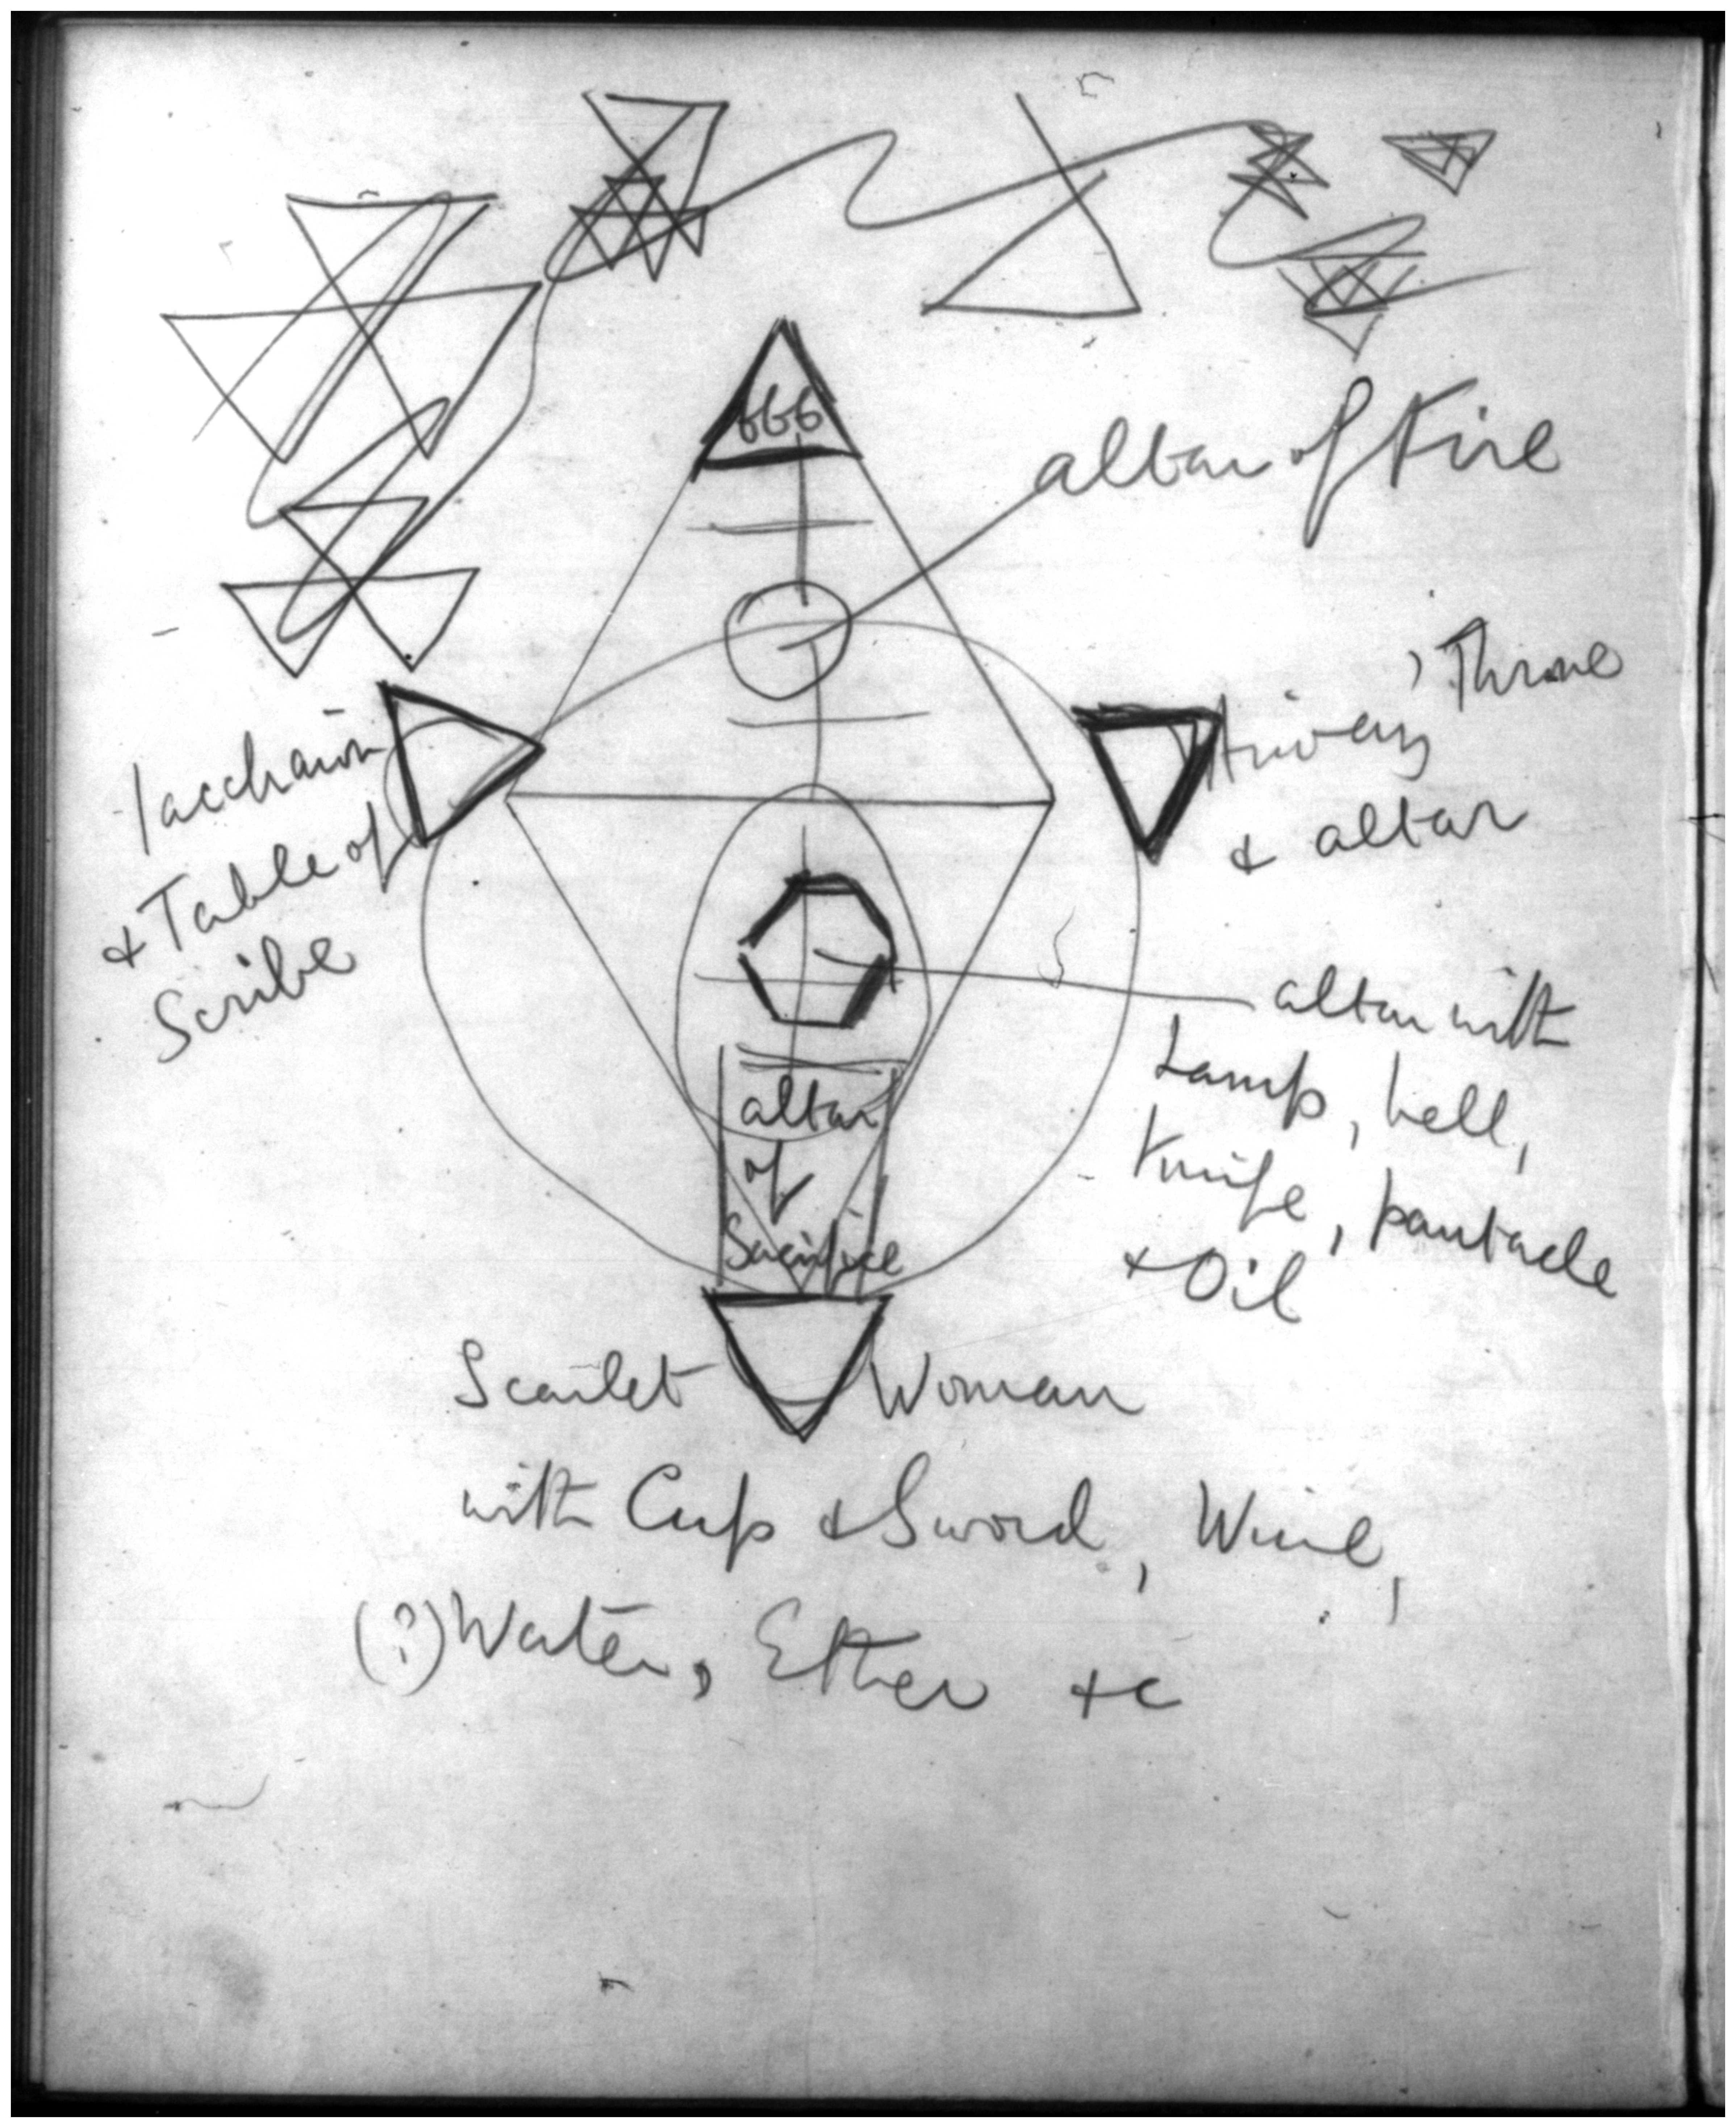 666
altar of Fire
Throne
& altar
Iacchaion
& Table of
Scribe
altar with
Lamp, bell,
Knife, pantacle
& Oil
altar
of
Sacrifice
Scarlet Woman
with Cup & Sword, Wine,
(?) Water, Ether &c